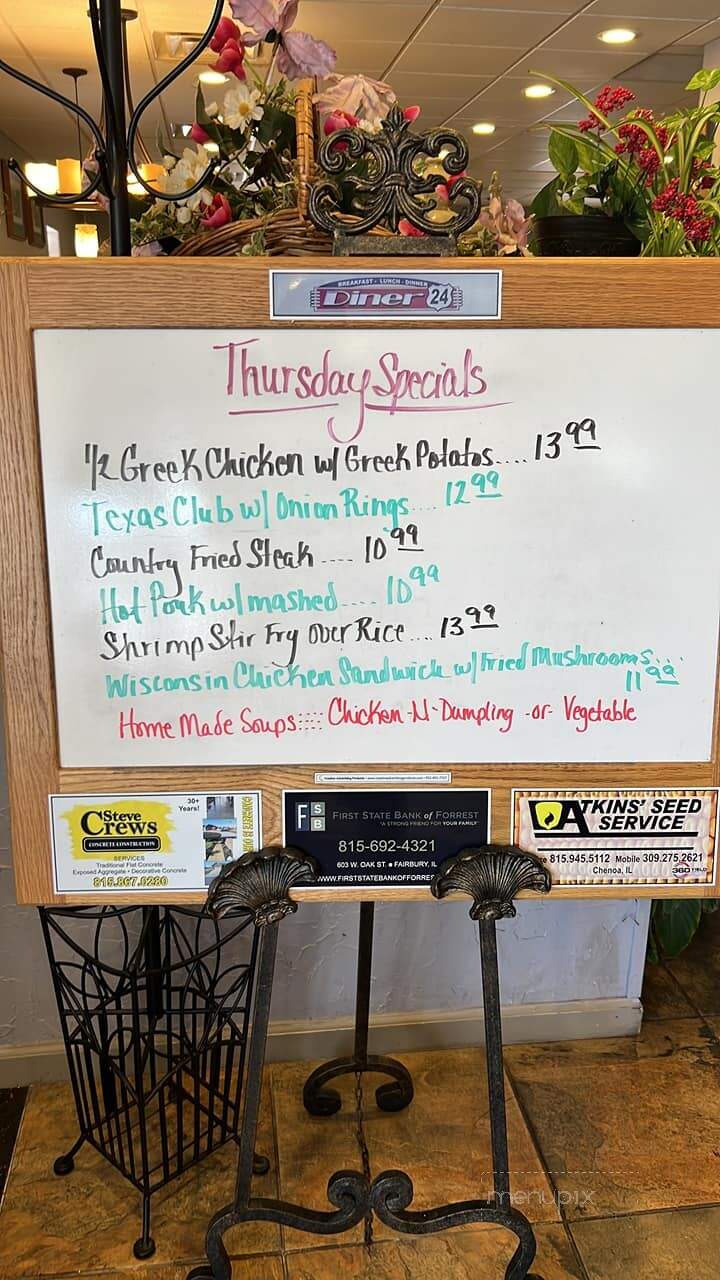 BREAKFAST - LUNCH - DINNER
Diner 24
Thursday Specials
1/2 Greek Chicken w/ Greek Potatos.... 13 99
Texas Club w/ Onion Rings.... 12 99
Country Fried Steak .... 10 99
Hot Pork w/ mashed.... 10 99
Shrimp Stir Fry Over Rice... 13 99
Wisconsin Chicken Sandwich w/ Fried Mushrooms...
11 99
Home Made Soups:::: Chicken-N-Dumpling -or- Vegetable
30+
Years!
Steve
Crews
CONCRETE CONSTRUCTION
SERVICES
Traditional Flat Concrete
Exposed Aggregate • Decorative Concrete
815.867.0280
FSB
FIRST STATE BANK of FORREST
"A STRONG FRIEND FOR YOUR FAMILY"
815-692-4321
603 W. OAK ST. • FAIRBURY, IL
WWW.FIRSTSTATEBANKOFFORRES
ATKINS' SEED
SERVICE
815.945.5112 Mobile 309.275.2621
Chenoa, IL
360
menupix